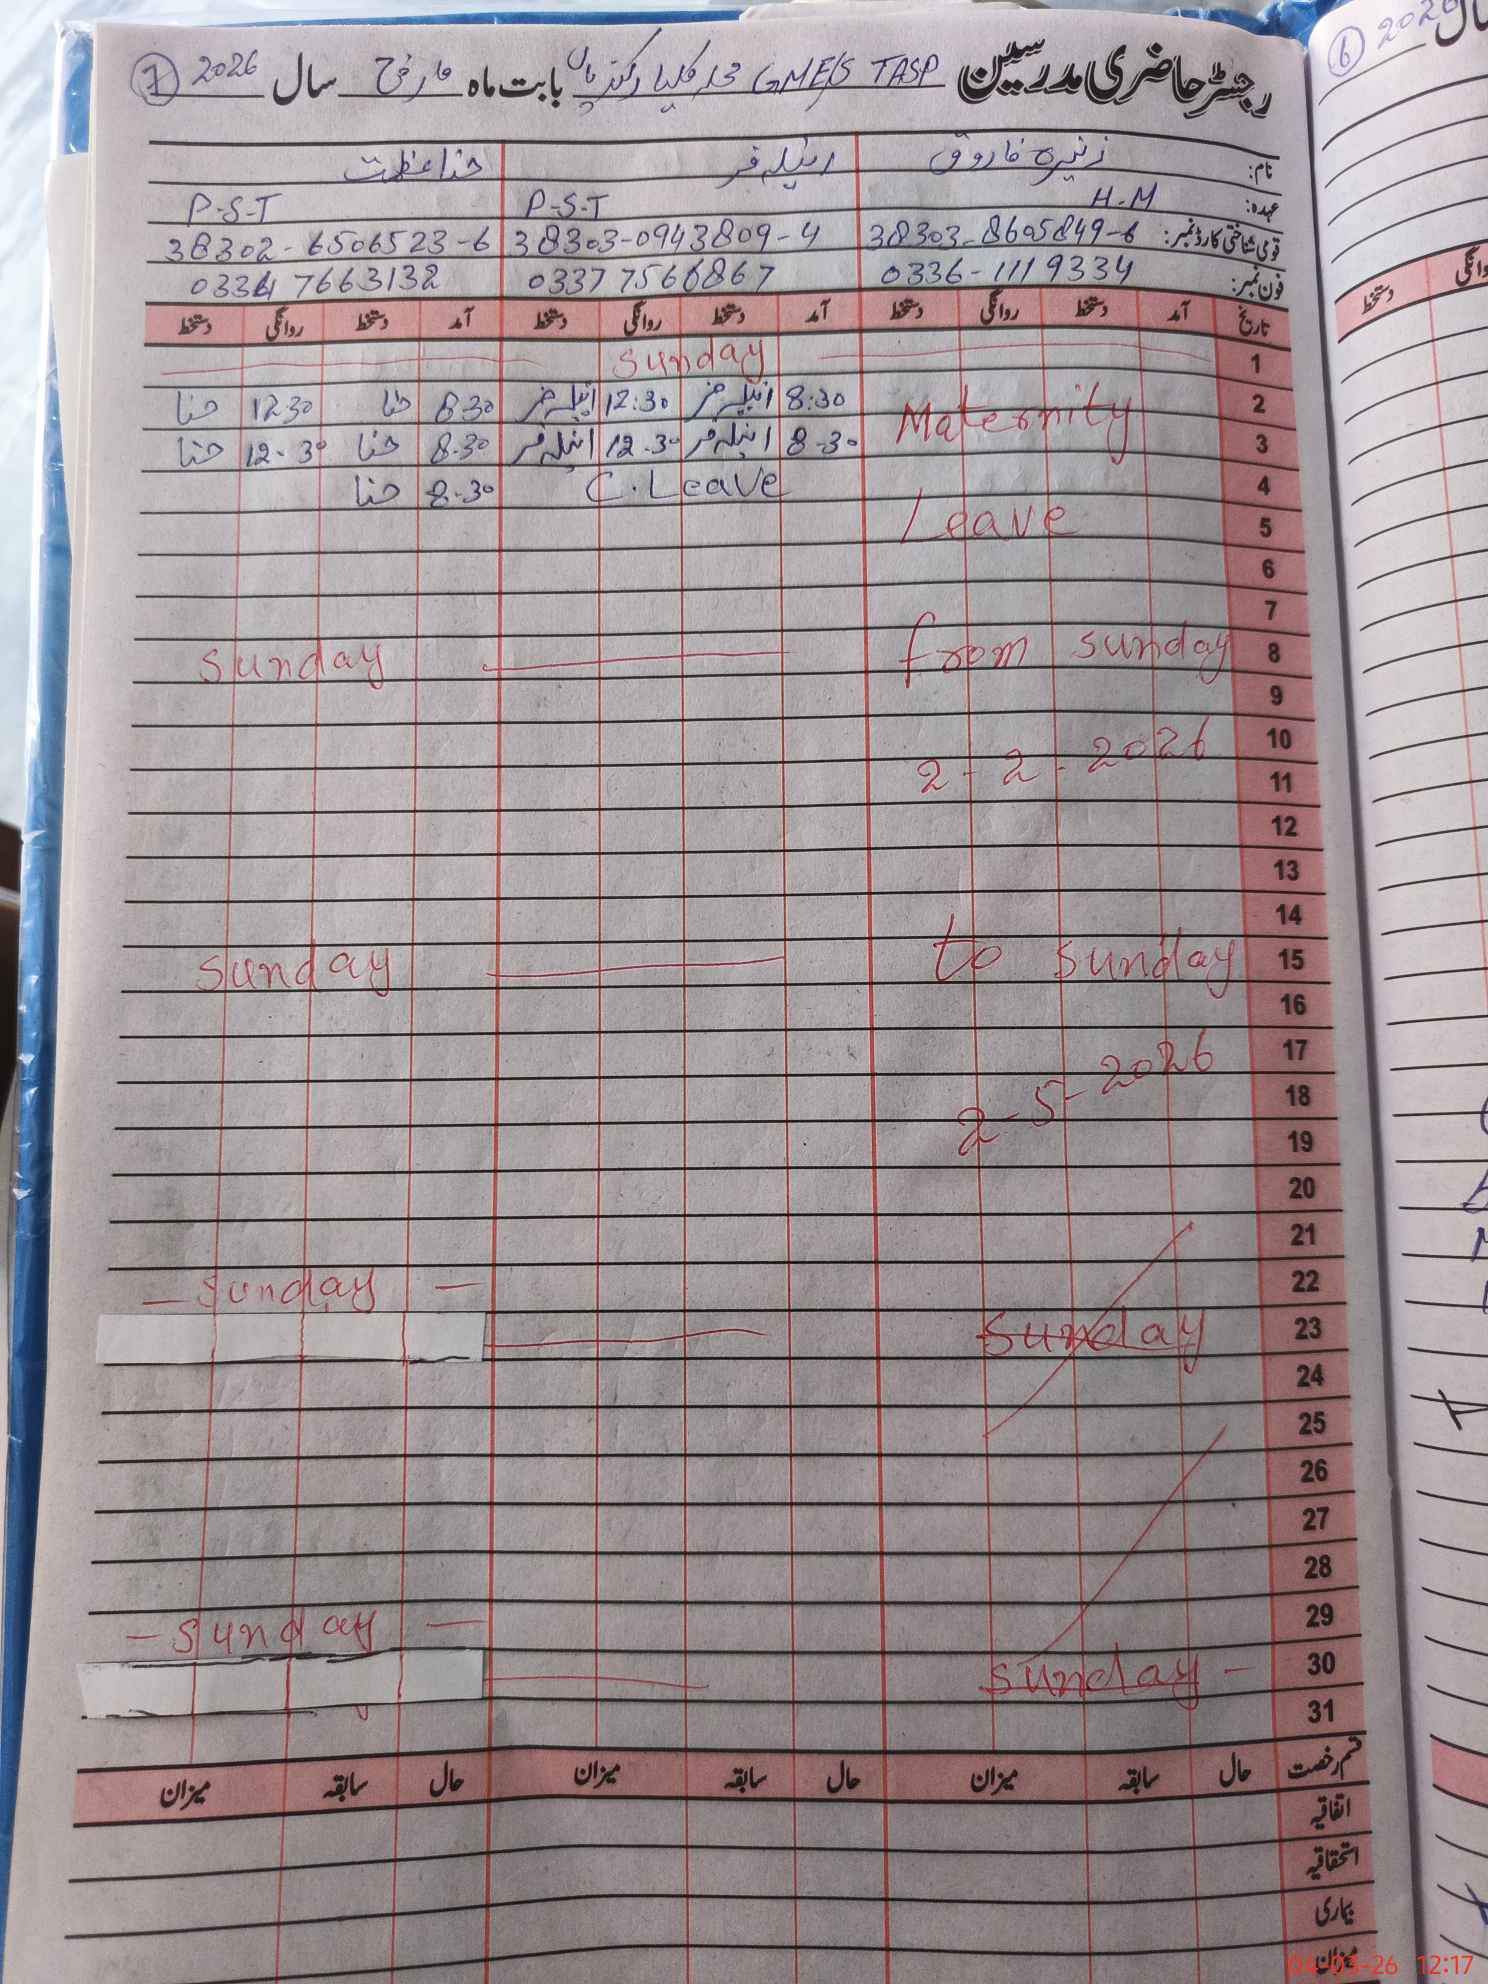 رجسٹر حاضری مدرسین GMES TASP محلہ بابت ماہ مارچ سال 2026 7
نام: زنیرہ فاروق انیلہ حنا عظمت
عہدہ: H-M P-S-T P-S-T
قومی شناختی کارڈ نمبر: 38303-8605849-6 38303-0943809-4 38302-6506523-6
فون نمبر: 0336-1119334 03377566867 03347663132
تاریخ آمد دستخط روانگی دستخط آمد دستخط روانگی دستخط آمد دستخط روانگی دستخط
1 Sunday
2 Maternity 8:30 12:30 8.30 حنا 1230 حنا
3 8-30 12.30 8.30 حنا 12.30 حنا
4 C.Leave 8.30 حنا
5 Leave
6
7
8 from sunday Sunday
9
10 2-2-2026
11
12
13
14
15 to sunday Sunday
16
17 2-5-2026
18
19
20
21
22 Sunday
23 Sunday
24
25
26
27
28
29 Sunday
30 Sunday
31
قسم رخصت حال سابقہ میزان حال سابقہ میزان حال سابقہ میزان
اتفاقیہ
استحقاقیہ
بیماری
میزان
6 2026 سال
روانگی دستخط
04-03-26 12:17